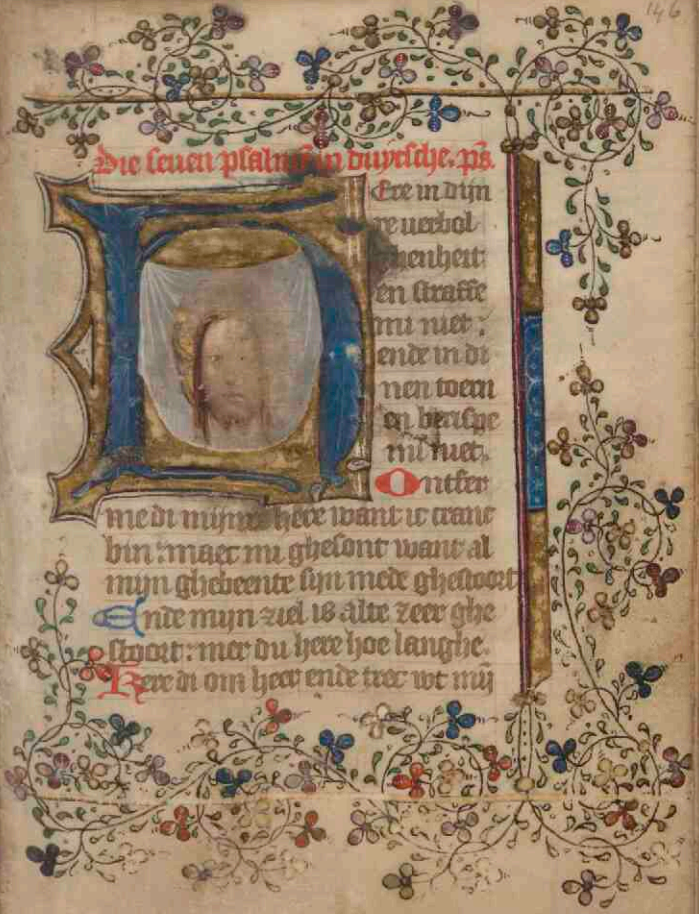 146
Die seuen psalmē in duytsche. ps̄.
Ere in dijn
re uerbol
ghenheit
en straffe
mi niet:
ende in di
nen toern
en berispe
mi niet.
Ontfer
me di mijnre here want ic cranc
bin: maec mi ghesont want al
mijn ghebeente sijn mede ghestoort
Ende mijn ziel is alte zeer ghe
stoort: mer du here hoe langhe.
Kere di om heer ende trec wt mij